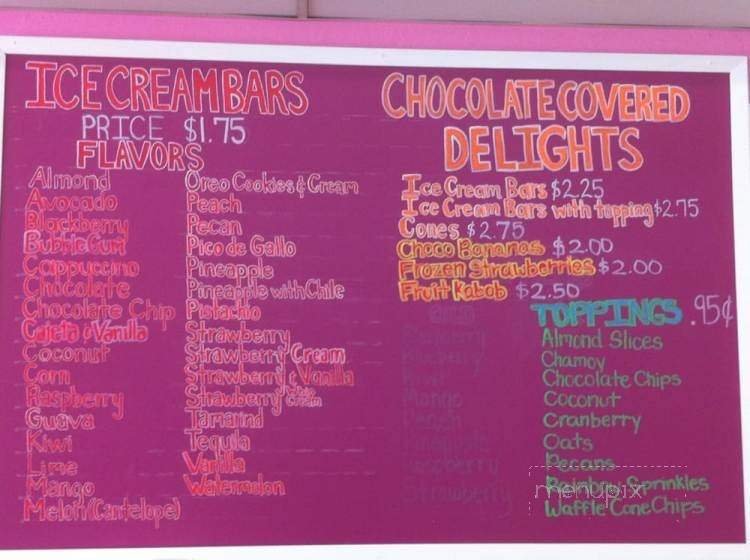 ICE CREAM BARS
PRICE $1.75
FLAVORS
Almond
Avocado
Blackberry
Bubble Gum
Cappuccino
Chocolate
Chocolate Chip
Cajeta & Vanilla
Coconut
Corn
Raspberry
Guava
Kiwi
Lime
Mango
Melon (Cantelope)
Oreo Cookies & Cream
Peach
Pecan
Pico de Gallo
Pineapple
Pineapple with Chile
Pistachio
Strawberry
Strawberry Cream
Strawberry & Vanilla
Strawberry
Tamarind
Tequila
Vanilla
Watermelon
CHOCOLATE COVERED
DELIGHTS
Ice Cream Bars $2.25
Ice Cream Bars with topping $2.75
Cones $2.75
Choco Bananas $2.00
Frozen Strawberries $2.00
Fruit Kabob $2.50
TOPPINGS .95¢
Almond Slices
Chamoy
Chocolate Chips
Coconut
Cranberry
Oats
Pecans
Rainbow Sprinkles
Waffle Cone Chips
menupix